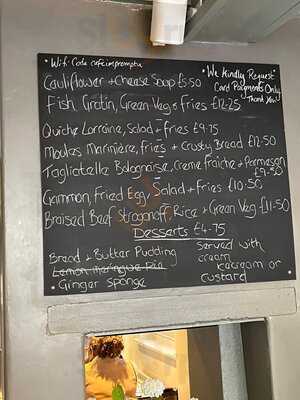 * Wifi Code cafeimpromptu
* We Kindly Request
Card Payments Only
Thank You!
Cauliflower + Cheese Soup £5.50
Fish Gratin, Green Veg + Fries £12.25
Quiche Lorraine, Salad + fries £9.75
Moules Marinière, fries + Crusty Bread £12.50
Tagliatelle Bolognaise, Creme fraiche + Parmesan
£9.50
Gammon, Fried Egg, Salad + Fries £10.50
Braised Beef Stroganoff, Rice + Green Veg £11.50
Desserts £4.75
Bread + Butter Pudding
Lemon Meringue Pie
• Ginger Sponge
Served with
cream
icecream or
custard